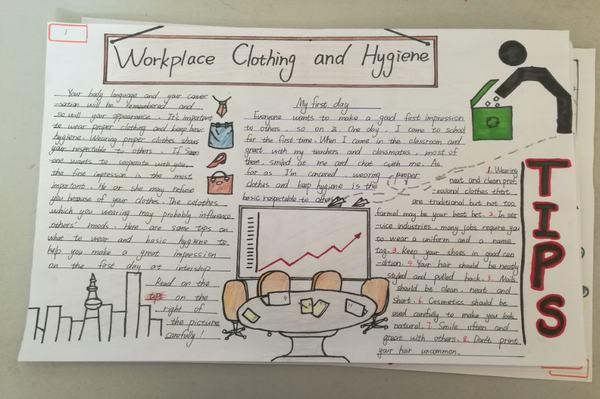 1
Workplace Clothing and Hygiene
Your body language and your conver
-sation will be remembered and
so will your appearance. It's important
to wear proper clothing and keep basic
hygiene. Wearing proper clothes shows
your respectable to others. If some
one wants to cooperate with you,
the fine impression is the most
important. He or she may refuse
you because of your clothes. The clothes
which you wearing may probably influence
others' moods. Here are some tips on
what to wear and basic hygiene to
help you make a great impression
on the first day at internship.
Read on the
tips on the
right of
the picture
carefully!
My first day
Everyone wants to make a good first impression
to others, so on 2. One day, I came to school
for the first time. When I came in the classroom and
greet with my teachers and classmates, most of
them smiled at me and chat with me. As
far as I'm concerned, wearing proper
clothes and keep hygiene is the
basic respectable to others.
TIPS
1. Wearing
neat and clean prof
-essional clothes that
are traditional but not too
formal may be your best bet. 2. In ser
-vice industries, many jobs require you
to wear a uniform and a name
tag. 3. Keep your shoes in good con
-dition. 4. Your hair should be neatly
styled and pulled back. 5. Nails
should be clean, neat and
short. 6. Cosmetics should be
used carefully to make you look
natural. 7. Smile often and
greet with others. 8. Don't print
your hair uncommon.